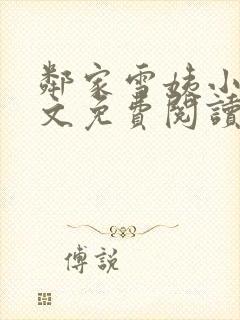 鄰家雪姨小
文免費閱讀
傅說